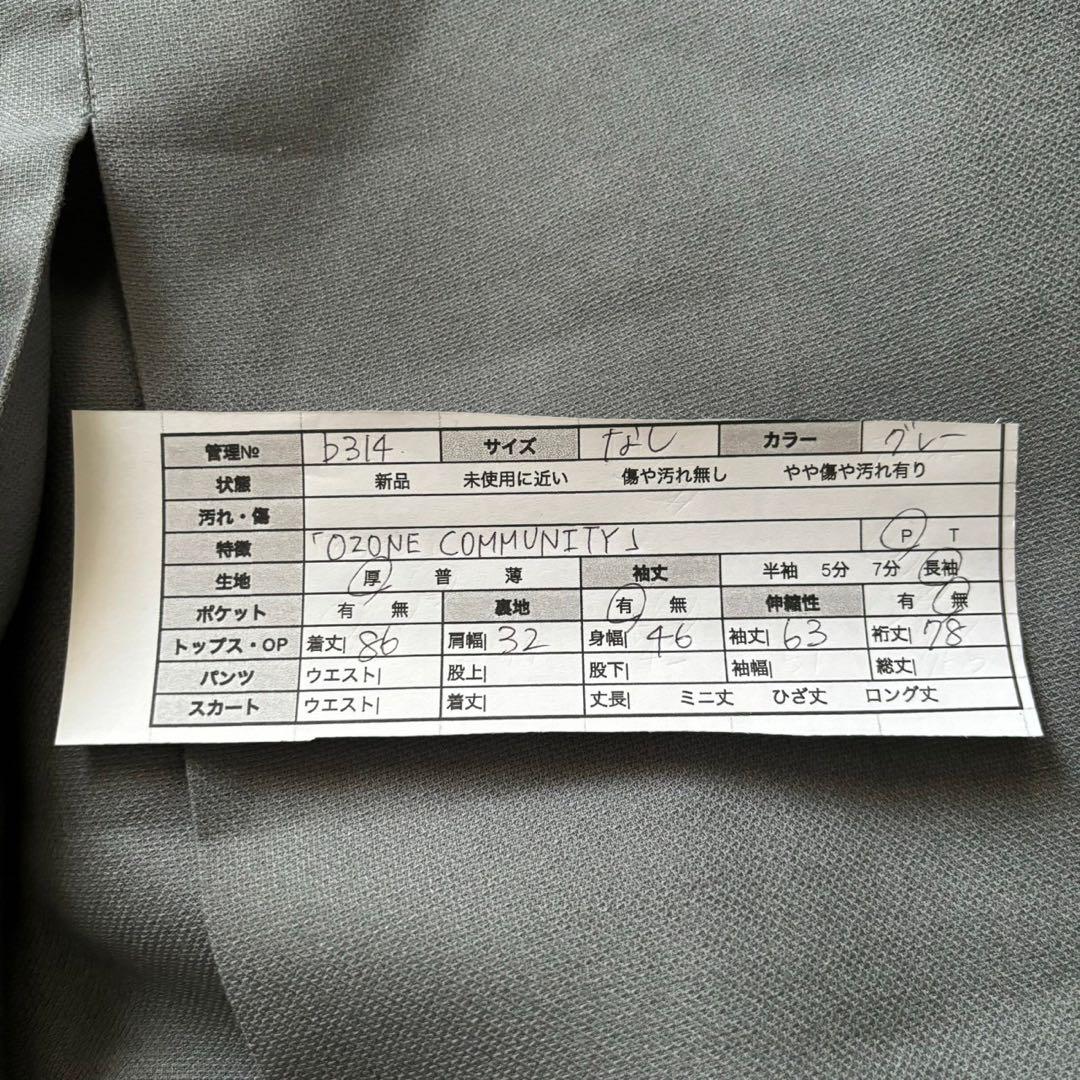 管理№ b314 サイズ なし カラー グレー
状態 新品 未使用に近い 傷や汚れ無し やや傷や汚れ有り
汚れ・傷
特徴 「OZONE COMMUNITY」 P T
生地 厚 普 薄 袖丈 半袖 5分 7分 長袖
ポケット 有 無 裏地 有 無 伸縮性 有 無
トップス・OP 着丈| 86 肩幅| 32 身幅| 46 袖丈| 63 裄丈| 78
パンツ ウエスト| 股上| 股下| 袖幅| 総丈|
スカート ウエスト| 着丈| 丈長| ミニ丈 ひざ丈 ロング丈